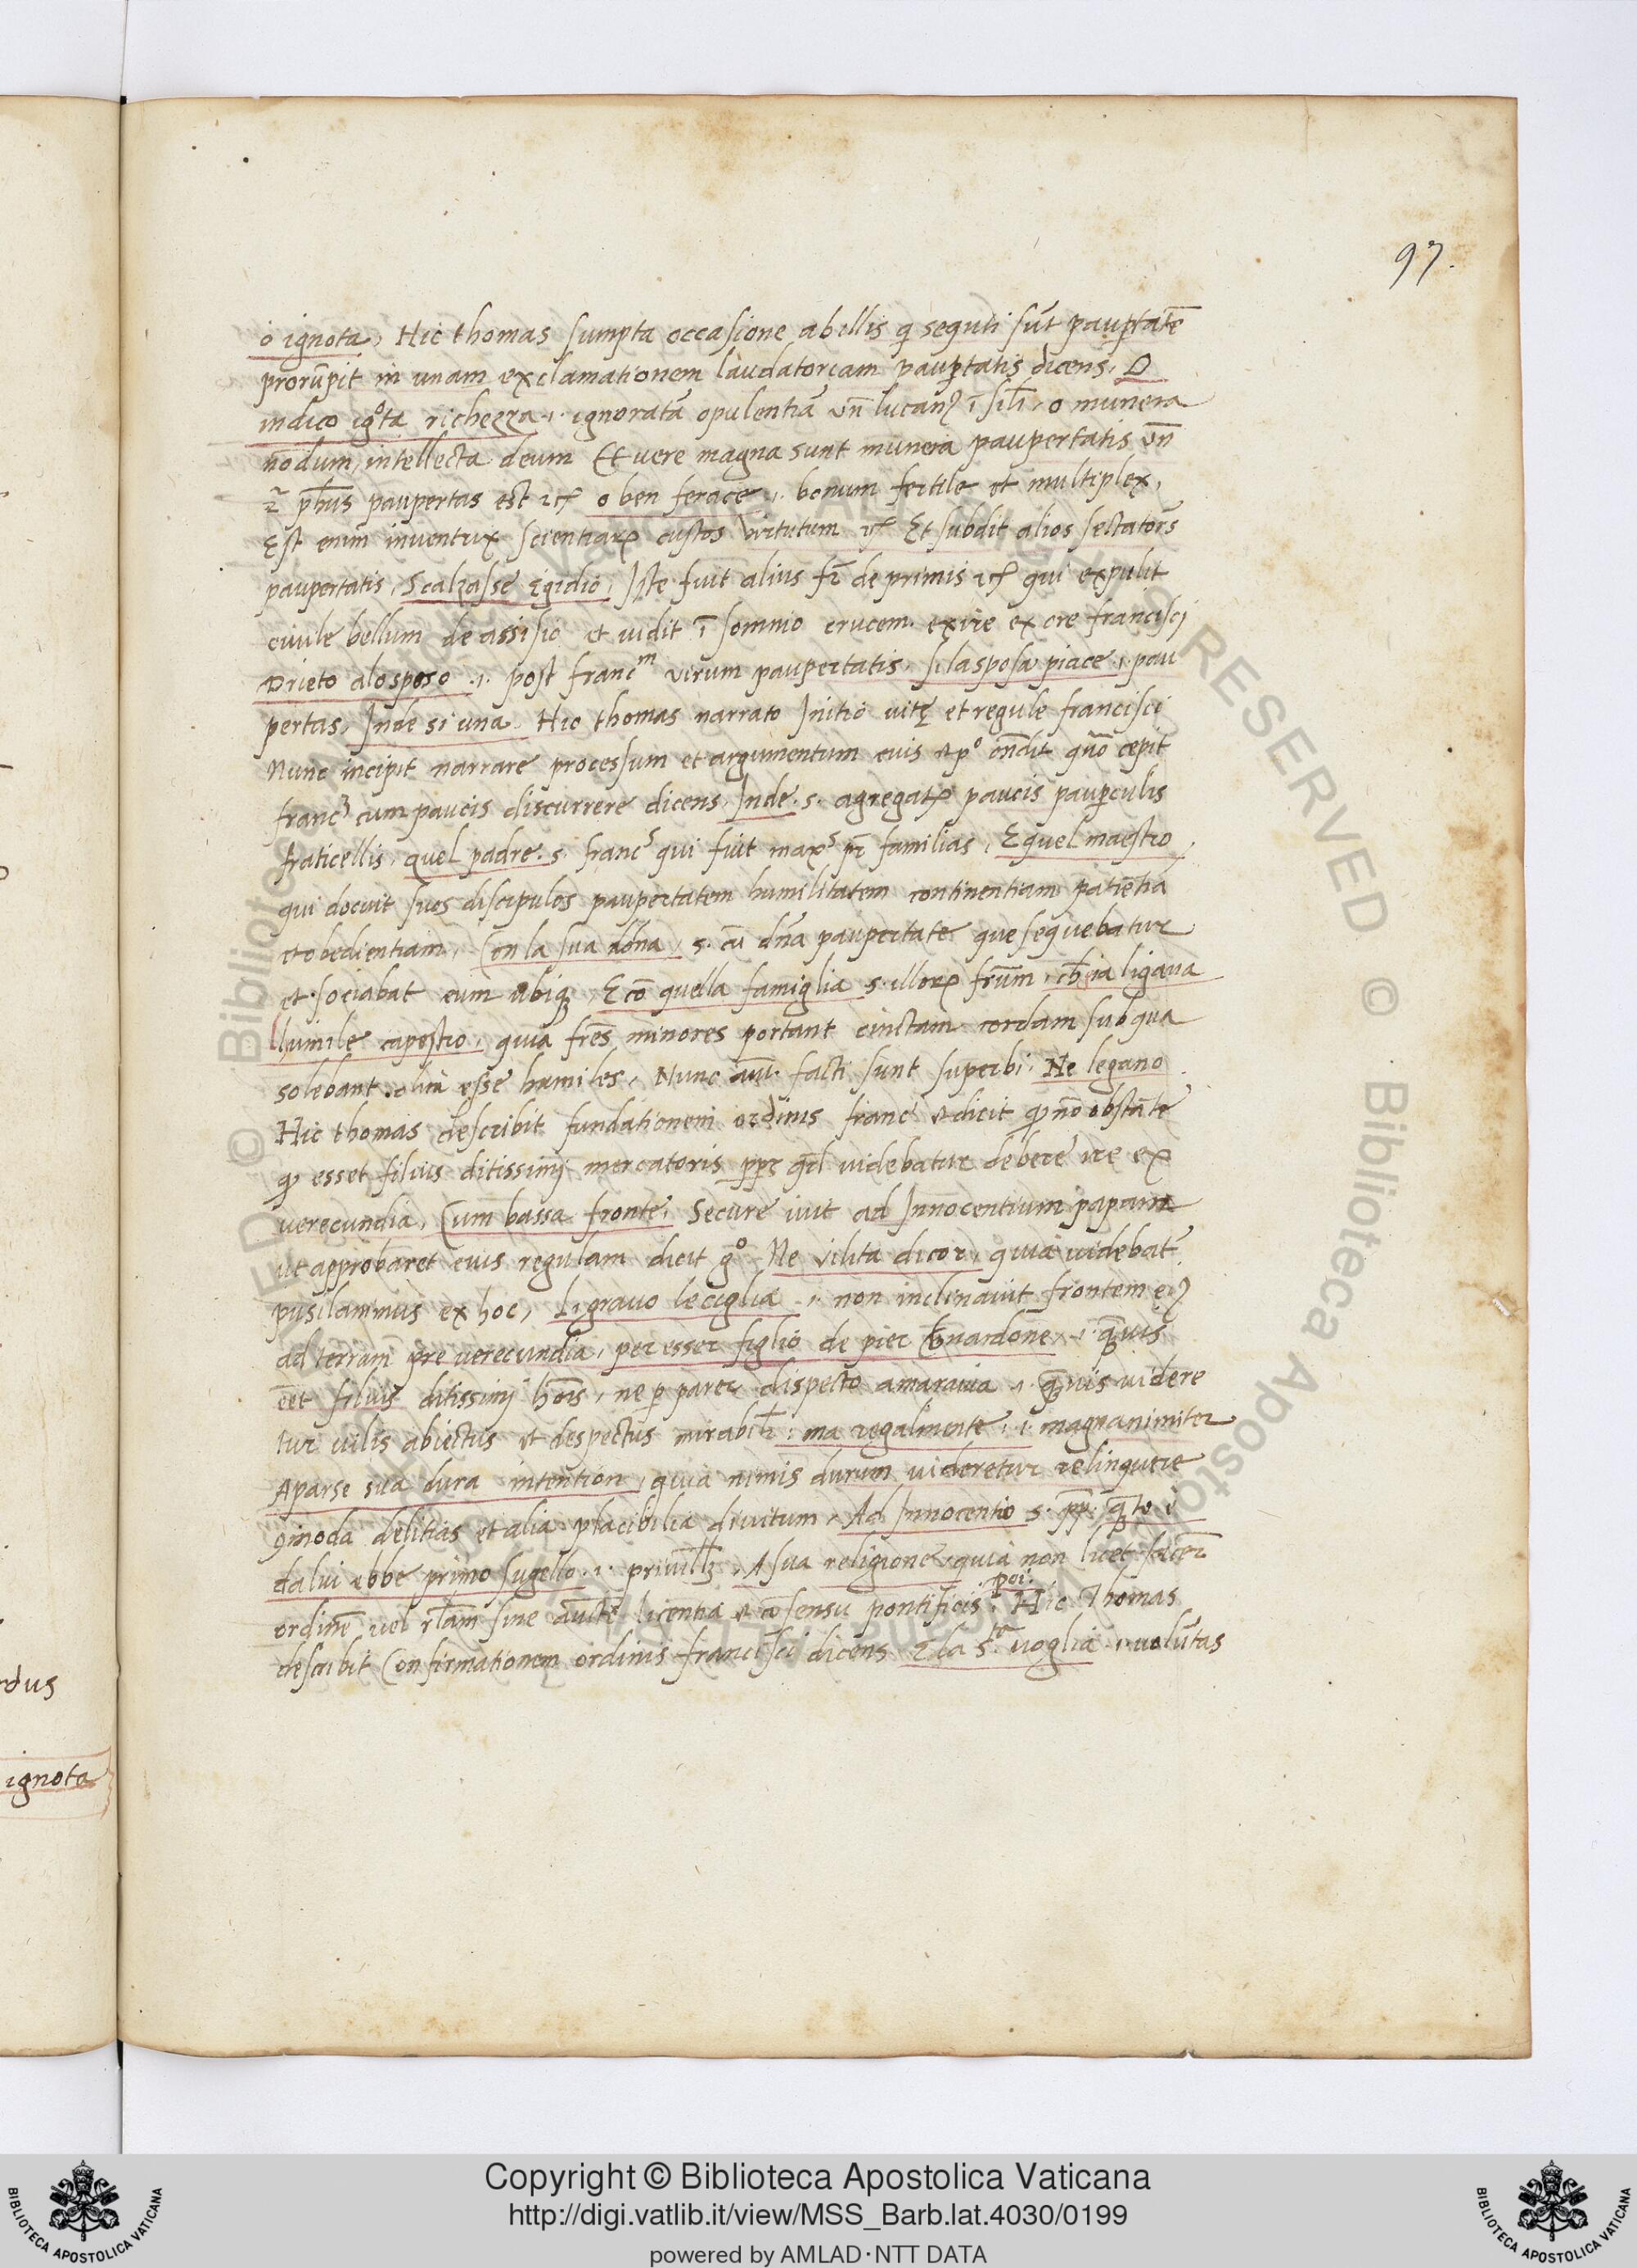 97.
o ignota, Hic thomas sumpta occasione ab illis q̄ seguti sūt paup̄tatē
prorūpit in unam exclamationem laudatoream paup̄tatis dicens. O
indico igota richezza .i. ignoratā opulentiā vn̄ lucan9 ī sili. o munera
nōdum intellecta deum Et vere magna sunt munera paupertatis vn̄
paupertas est o ben ferace .i. bonum fertile et multiplex,
Est enim inventrix scientiaꝝ custos virtutum Et subdit alios sectators
paupertatis, Scalzasse Egidio, Iste fuit alius fr̄ de primis qui expulit
civile bellum de assisio et vidit ī somnio crucem exire ex ore francisci
Drieto alo sposo .i. post francm virum paupertatis. si la sposa piace .i. pau
pertas, Inde si una. Hic thomas narrato Initio vitę et regule francisci
Nunc incipit narrare processum et argumentum eius & po on̄dit quō cepit
franc9 cum paucis discurrere dicens. Inde .s. agregatꝭ paucis paup̄culis
fraticellis, quel padre .s. francs qui fuit maxs pr̄ familias, E quel maestro,
qui docuit suos discipulos paupertatem humilitatem continentiam patiētiā
et obedientiam, Con la sua dōna, s. cū dn̄a paupertate que sequebatur
et sociabat eum ubiqꝫ, E cō quella famiglia s. illoꝝ frūm, ch̄ ia ligava
llumile capestro, quia frēs minores portant cinctam cordam sub qua
solebant olim esse humiles, Nunc aut̄ facti sunt superbi. Ne legano
Hic thomas describit fundationem ordinis franci & dicit qꝫ nō obstāte
qꝫ esset filius ditissimi mercatoris pp̄ qd̄ videbatur debere ire ex
verecundia, Cum bassa fronte, Secure ivit ad Innocentium papam
ut approbaret eius regulam dicit go Ne vilita dicor, quia videbat̄
pusilanimus ex hoc, Li gravo le ciglia .i. non inclinavit frontem
ad terram pre verecundia, per esser figlio de pier b̄nardone .i. q̄vis
ēet filius ditissimi hoīs, ne p̄ parer dispecto amaravia .i. q̄vis videre
tur vilis abiectus et despectus mirabilr̄: ma regalmente, .i. magnanimiter
Aparse sua dura intention, quia nimis durum videretur relinquere
ꝯmoda delitias et alia placibilia divitum, Ad Innocentio s. pp̄ q̄to e
da lui ebbe primo sugello .i. privill, A sua religione, quia non licet facer
ordinē vel rl̄am sine auctē licentia & cō sensu pontificis. poi. Hic Thomas
describit Confirmationem ordinis francisci dicens E la sta voglia .i. volūtas
rdus
ignota
Copyright © Biblioteca Apostolica Vaticana
http://digi.vatlib.it/view/MSS_Barb.lat.4030/0199
powered by AMLAD·NTT DATA
BIBLIOTECA APOSTOLICA VATICANA
BIBLIOTECA APOSTOLICA VATICANA